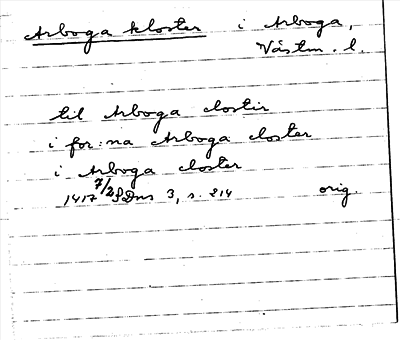 Arboga kloster i Arboga,
Västm. l.
til Arboga clostir
i for:na Arboga closter
i Arboga closter
1417 7/2 SDns 3, s. 214 orig.